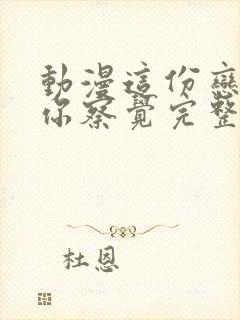 動漫這份戀
你察覺完整
杜恩